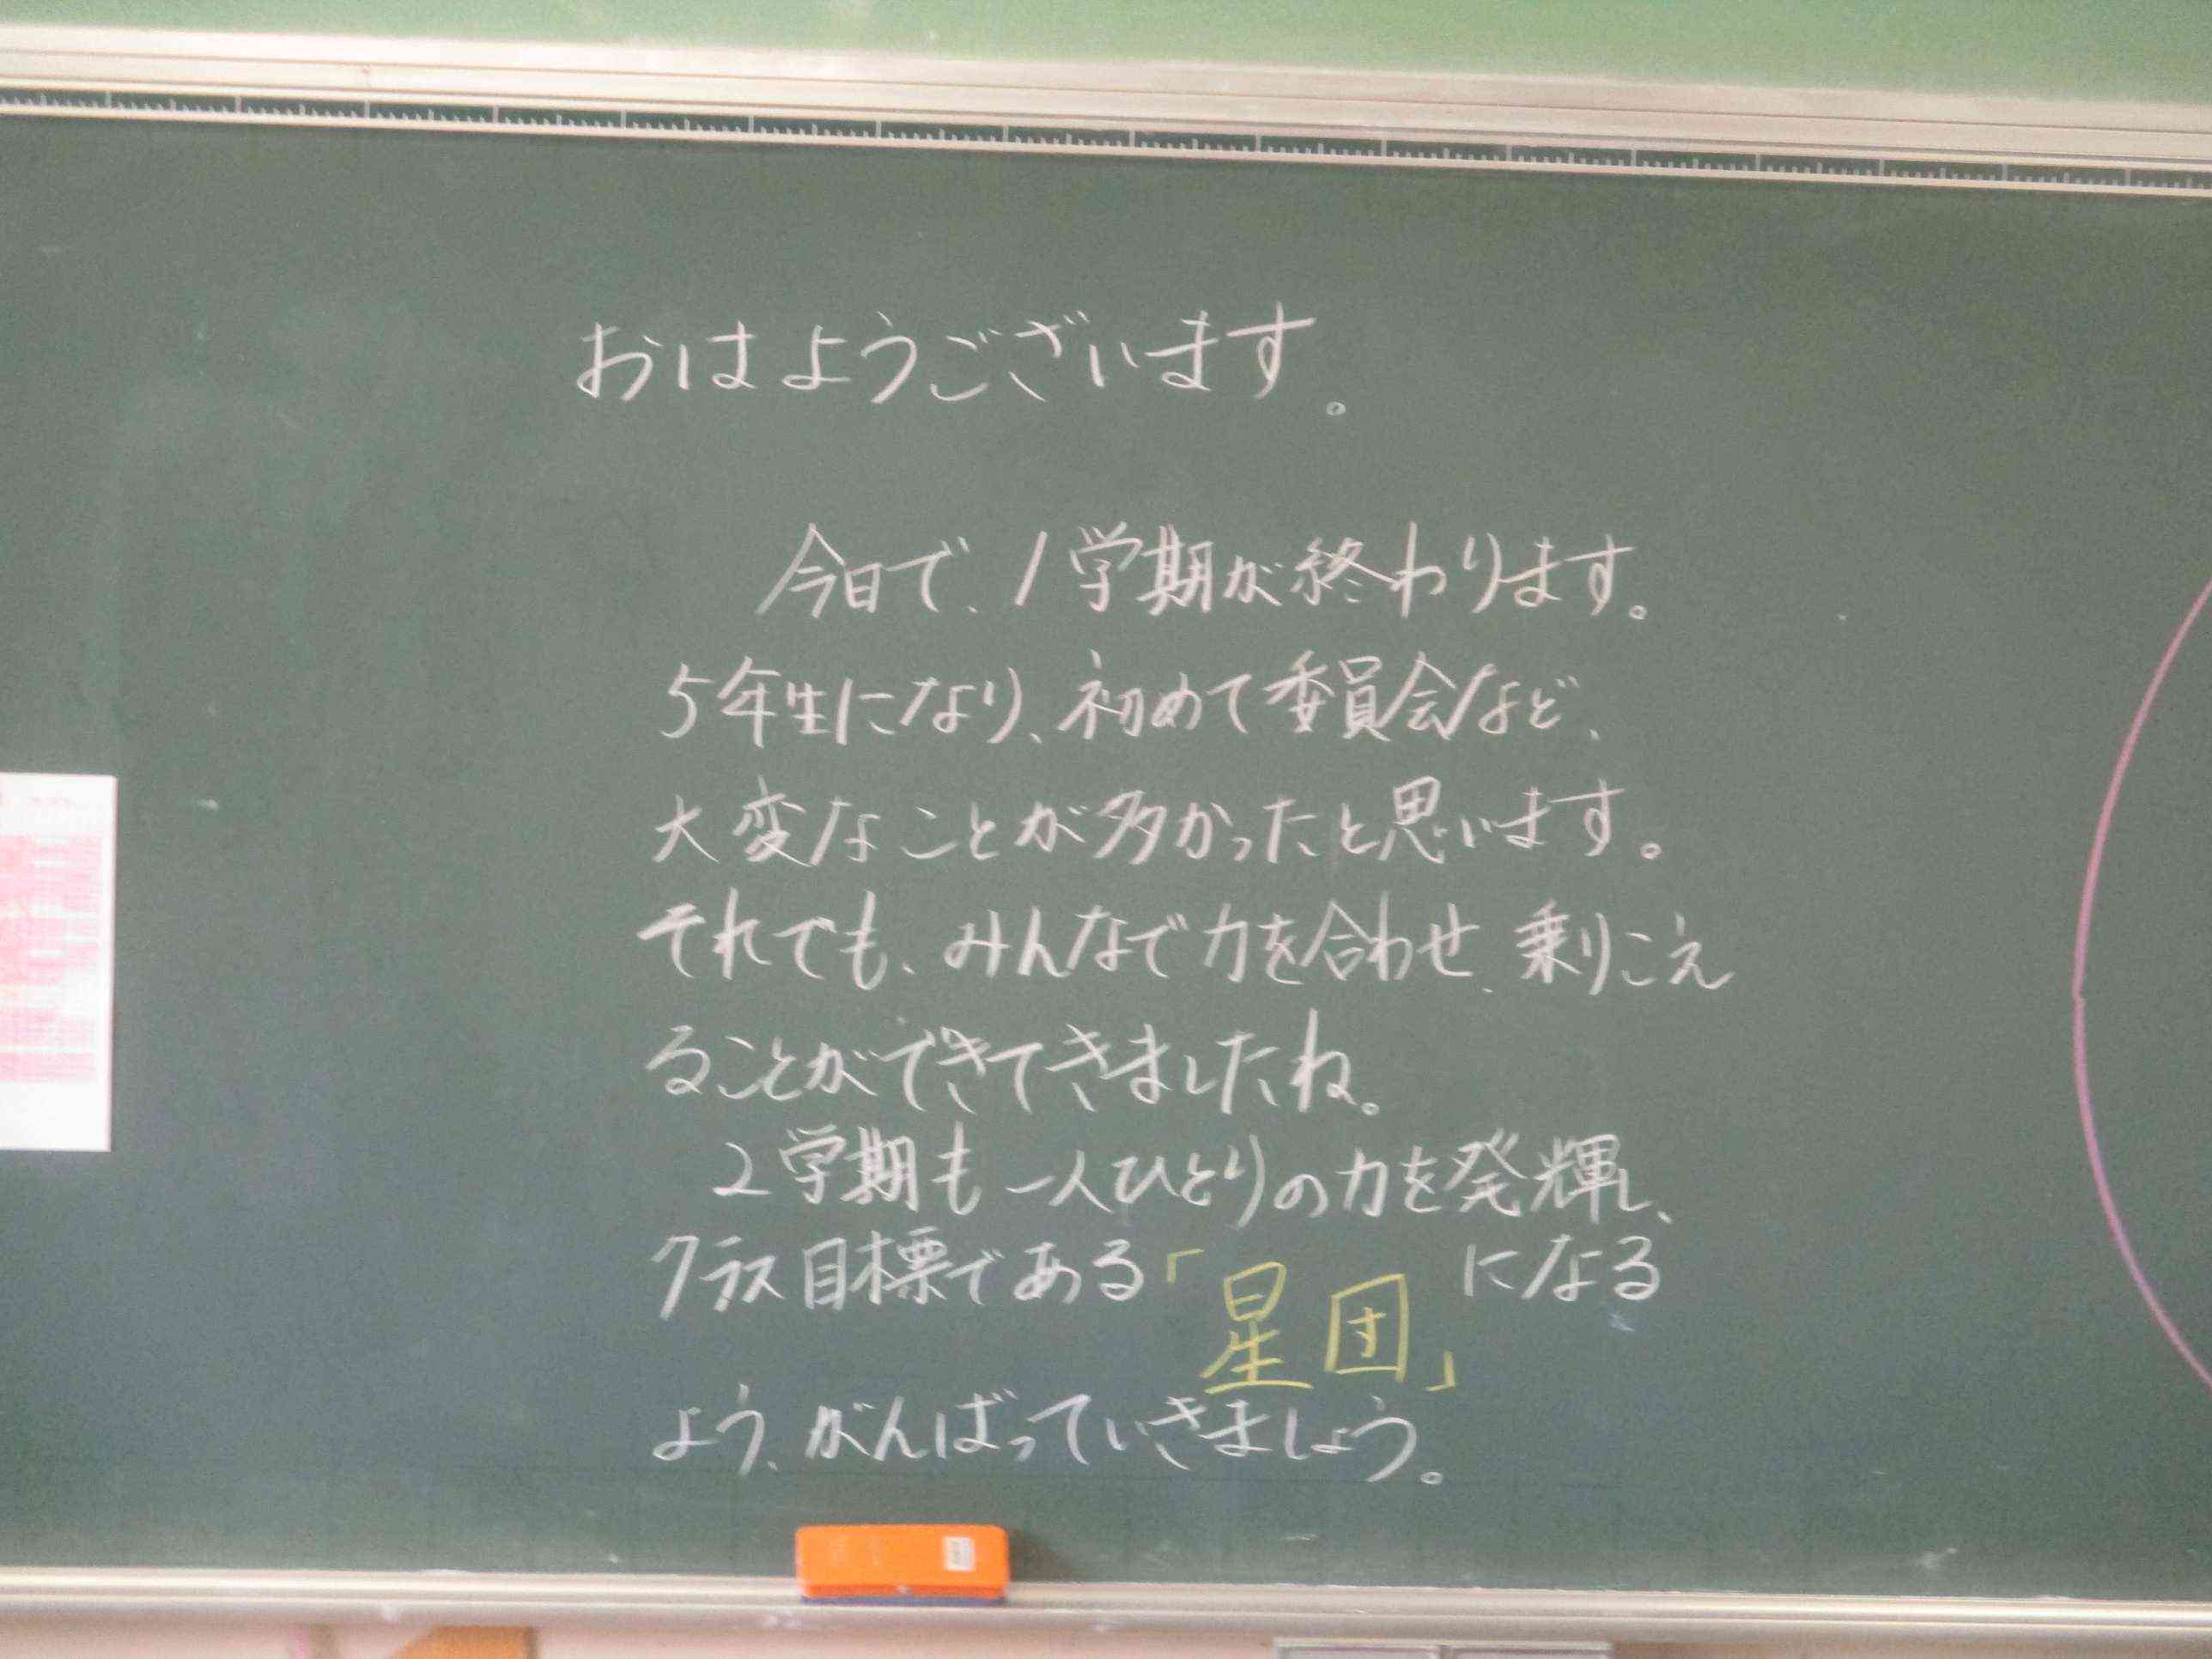 おはようございます。
今日で、1学期が終わります。
5年生になり、初めて委員会など、
大変なことが多かったと思います。
それでも、みんなで力を合わせ、乗りこえ
ることができてきましたね。
2学期も一人ひとりの力を発輝し、
クラス目標である「星団」になる
よう、がんばっていきましょう。